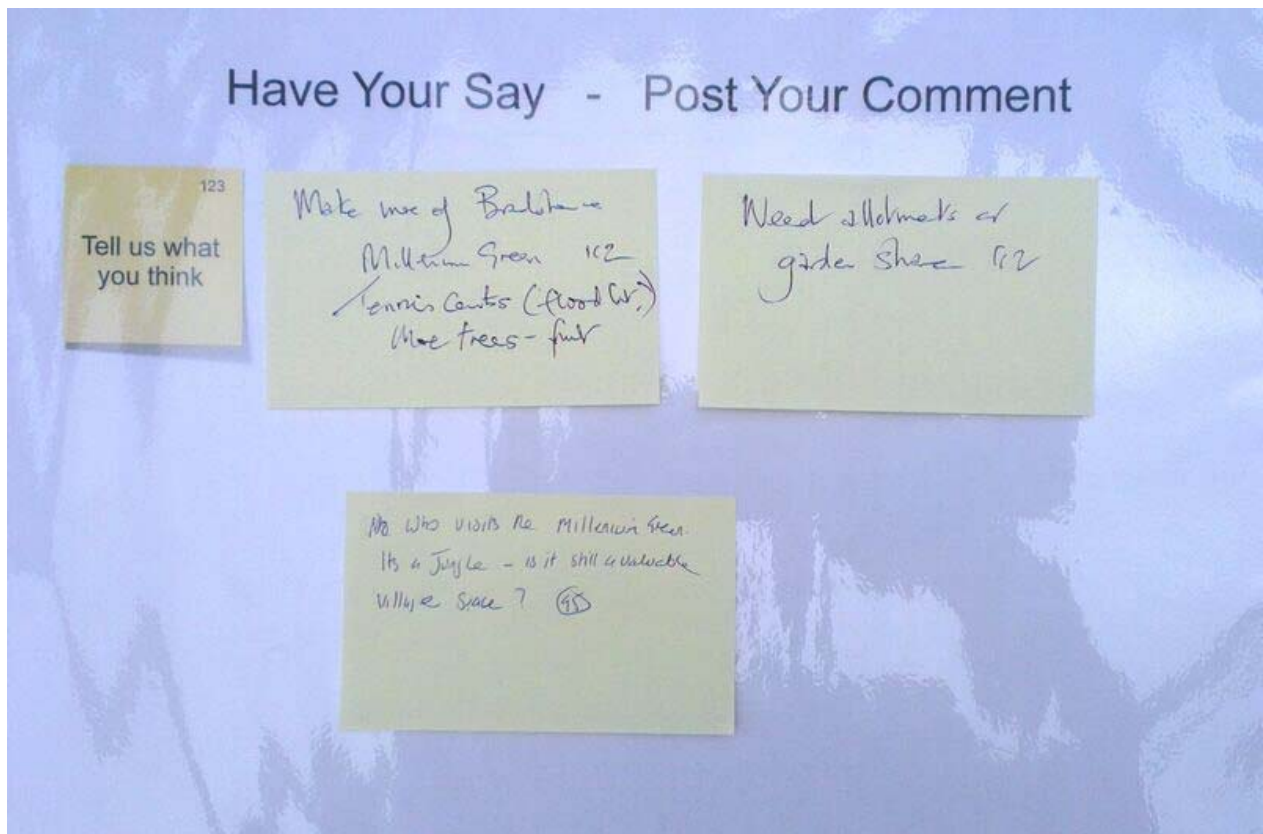 Have Your Say - Post Your Comment
123
Tell us what
you think
Make more of
Millenium Green 112
Tennis Courts (flood lit?)
More trees - fruit
Need allotments or
garden share 112
No who visits the Millenium Green.
Its a Jungle - is it still a valuable
Village Space ? 95